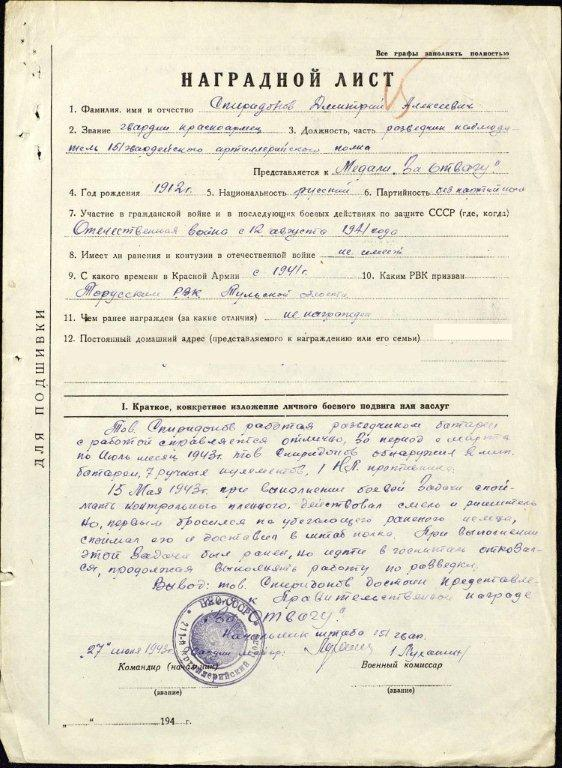 Все графы заполнять полностью
НАГРАДНОЙ ЛИСТ
1. Фамилия, имя и отчество Спиридонов Дмитрий Алексеевич
2. Звание гвардии красноармеец 3. Должность, часть разведчик наблюда
тель 151 гвардейского артиллерийского полка
Представляется к Медали „За отвагу"
4. Год рождения 1912 г. 5. Национальность русский 6. Партийность беспартийный
7. Участие в гражданской войне и в последующих боевых действиях по защите СССР (где, когда)
Отечественная война с 12 августа 1941 года
8. Имеет ли ранения и контузии в отечественной войне не имеет
9. С какого времени в Красной Армии с 1941 г. 10. Каким РВК призван
Торусским РВК Тульской области
11. Чем ранее награжден (за какие отличия) не награжден
12. Постоянный домашний адрес (представляемого к награждению или его семьи)
ДЛЯ ПОДШИВКИ
I. Краткое, конкретное изложение личного боевого подвига или заслуг
Тов. Спиридонов работая разведчиком батареи
с работой справляется отлично, За период с марта
по Июль месяц 1943 г. тов Спиридонов обнаружил мин.
батареи, 7 ручных пулеметов, 1 НП противника.
15 Мая 1943 г. при выполнении боевой Задачи спой-
мать контрольного пленного. Действовал смело и решитель
но, первым бросился на убегающего раненого немца,
споймал его и доставил в штаб полка. При выполнении
этой Задачи был ранен, но идти в госпиталь отказал-
ся, продолжая выполнять работу по разведки.
Вывод: тов. Спиридонов Достоин представле-
к Правительственной награде
„За Отвагу".
Начальник штаба 151 гвап.
„27" июля 1943 г. Гвардии майор: / Луганин /
Командир (начальник) Военный комиссар
(звание) (звание)
„ " 194 г.
НКО-СССР
артиллерийский полк